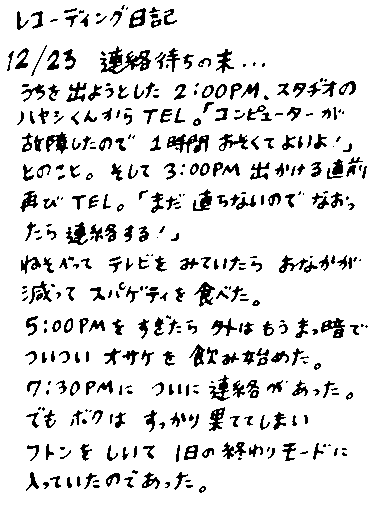 レコーディング日記
12/23 連絡待ちの末...
うちを出ようとした 2:00PM、スタヂオの
ハヤシくんからTEL。「コンピューターが
故障したので 1時間 おそくてよいよ!」
とのこと。そして 3:00PM 出かける直前
再びTEL。「まだ 直らないので なおっ
たら 連絡する!」
ねそべって テレビを みていたら おなかが
減って スパゲティを 食べた。
5:00PMを すぎたら 外は もう まっ暗で
ついつい オサケを 飲み始めた。
7:30PMに ついに 連絡があった。
でも ボクは すっかり 果ててしまい
フトンを しいて 1日の終わりモードに
入っていたのであった。